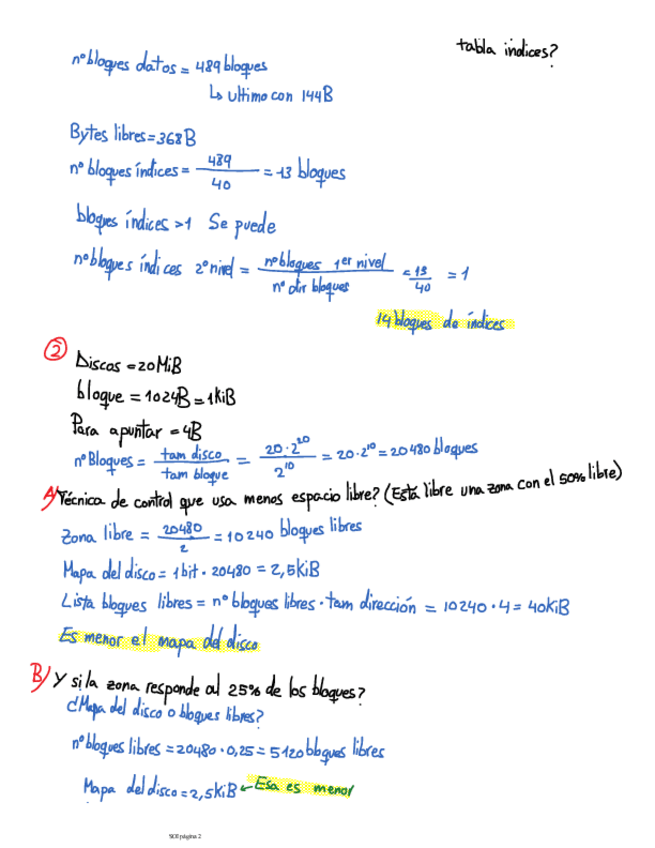 tabla índices?
nº bloques datos = 489 bloques
↳ ultimo con 144B
Bytes libres = 368B
nº bloques índices = 489/40 = 13 bloques
bloques índices >1 Se puede
nº bloques índices 2º nivel = nº bloques 1er nivel/nº dir bloques = 13/40 = 1
14 bloques de índices
② Discos = 20MiB
bloque = 1024B = 1KiB
Para apuntar = 4B
nº Bloques = tam disco/tam bloque = 20·2^20/2^10 = 20·2^10 = 20480 bloques
A/ Técnica de control que usa menos espacio libre? (Está libre una zona con el 50% libre)
Zona libre = 20480/2 = 10240 bloques libres
Mapa del disco = 1bit · 20480 = 2,5KiB
Lista bloques libres = nº bloques libres · tam dirección = 10240 · 4 = 40KiB
Es menor el mapa del disco
B/ Y si la zona responde al 25% de los bloques?
¿Mapa del disco o bloques libres?
nº bloques libres = 20480 · 0,25 = 5120 bloques libres
Mapa del disco = 2,5KiB ← Esa es menor
SOI página 2